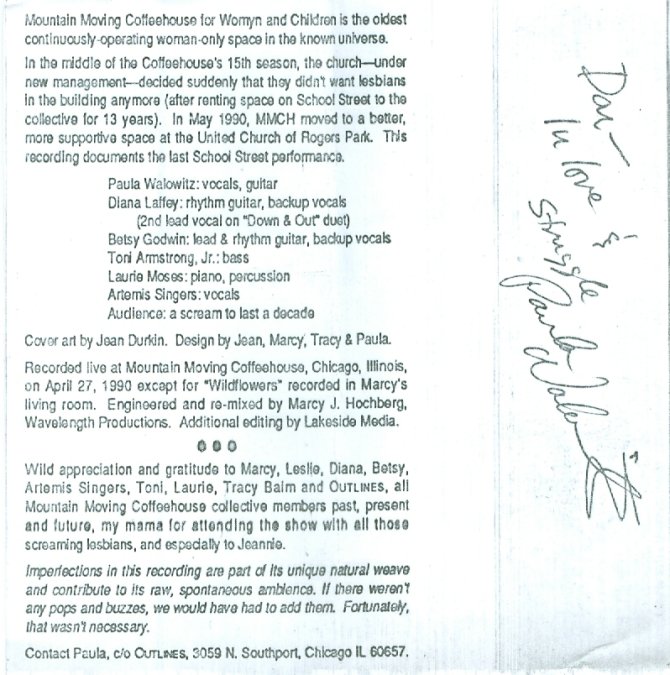 Mountain Moving Coffeehouse for Womyn and Children is the oldest
continuously-operating woman-only space in the known universe.
In the middle of the Coffeehouse's 15th season, the church—under
new management—decided suddenly that they didn't want lesbians
in the building anymore (after renting space on School Street to the
collective for 13 years). In May 1990, MMCH moved to a better,
more supportive space at the United Church of Rogers Park. This
recording documents the last School Street performance.
Paula Walowitz: vocals, guitar
Diana Laffey: rhythm guitar, backup vocals
(2nd lead vocal on "Down & Out" duet)
Betsy Godwin: lead & rhythm guitar, backup vocals
Toni Armstrong, Jr.: bass
Laurie Moses: piano, percussion
Artemis Singers: vocals
Audience: a scream to last a decade
Cover art by Jean Durkin. Design by Jean, Marcy, Tracy & Paula.
Recorded live at Mountain Moving Coffeehouse, Chicago, Illinois,
on April 27, 1990 except for "Wildflowers" recorded in Marcy's
living room. Engineered and re-mixed by Marcy J. Hochberg,
Wavelength Productions. Additional editing by Lakeside Media.
Wild appreciation and gratitude to Marcy, Leslie, Diana, Betsy,
Artemis Singers, Toni, Laurie, Tracy Baim and OUTLINES, all
Mountain Moving Coffeehouse collective members past, present
and future, my mama for attending the show with all those
screaming lesbians, and especially to Jeannie.
Imperfections in this recording are part of its unique natural weave
and contribute to its raw, spontaneous ambience. If there weren't
any pops and buzzes, we would have had to add them. Fortunately,
that wasn't necessary.
Contact Paula, c/o OUTLINES, 3059 N. Southport, Chicago IL 60657.
In love &
Struggle
Paula Walowitz